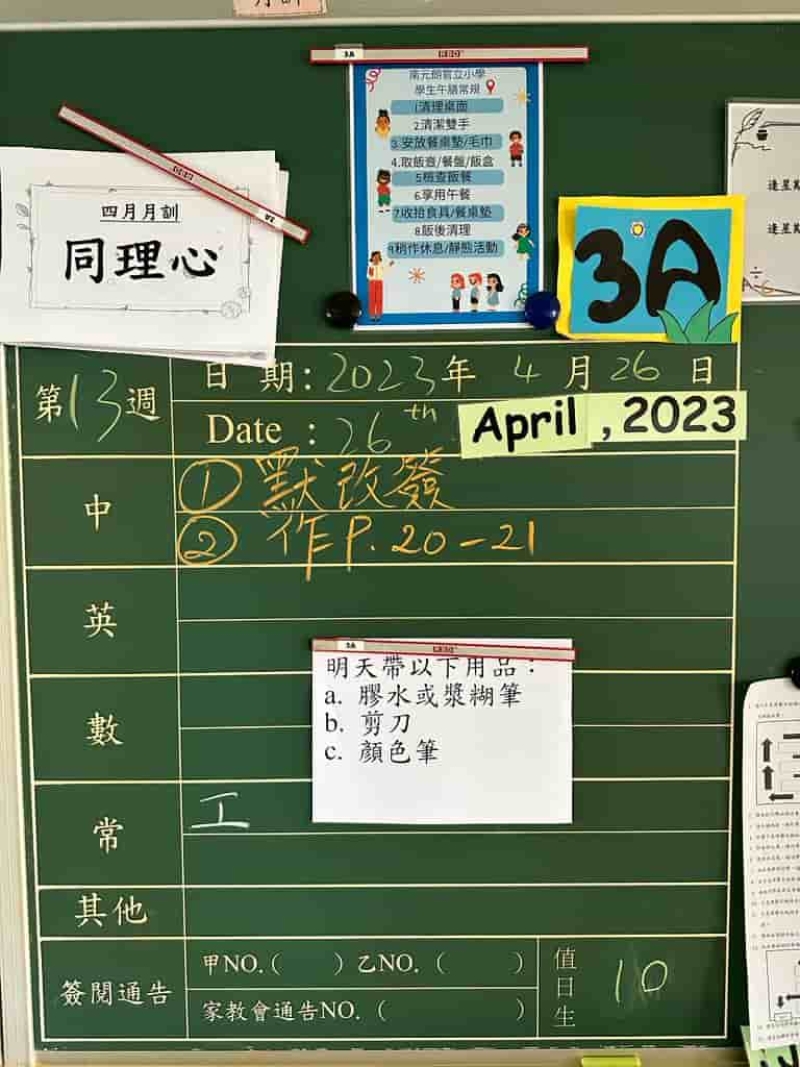 四月月訓
同理心
南元朗官立小學
學生午膳常規
1清理桌面
2清潔雙手
3.安放餐桌墊/毛巾
4.取飯壺/餐盤/飯盒
5檢查飯餐
6.享用午餐
7.收拾食具/餐桌墊
8.飯後清理
9稍作休息/靜態活動
3A
3A
第13週
日 期:2023年 4 月 26 日
Date : 26th April , 2023
中
① 默改簽
② 作P. 20-21
英
數
明天帶以下用品：
3A
a. 膠水或漿糊筆
b. 剪刀
c. 顏色筆
常
工
其他
簽閱通告
甲NO.( ) 乙NO. ( )
家教會通告NO. ( )
值日生
10